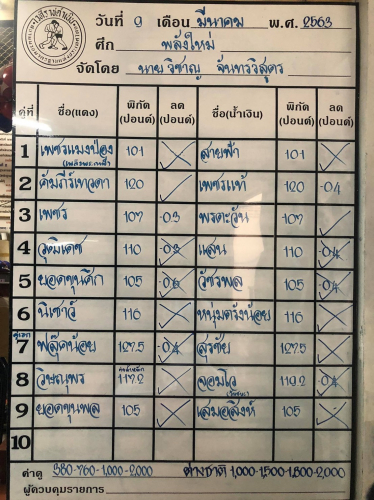 วันที่ 9 เดือน มีนาคม พ.ศ. 2563
ศึก พลังใหม่
จัดโดย นาย วิชาญ จันทรวิสูตร
คู่ที่ ชื่อ(แดง) พิกัด (ปอนด์) ลด (ปอนด์) ชื่อ(น้ำเงิน) พิกัด (ปอนด์) ลด (ปอนด์)
1 เพชรแมงป่อง 101 สายฟ้า 101
2 คัมภีร์เทวดา 120 เพชรแท้ 120 -04
3 เพชร 107 -03 พรตะวัน 107
4 วุฒิเดช 110 -03 แสน 110 -04
5 ยอดขุนศึก 105 -06 วัชรพล 105 -04
6 นิเชาว์ 116 หนุ่มตรังน้อย 116
คู่เอก
7 ฟลุ๊คน้อย 127.5 -04 สุรชัย 127.5
8 วิษณุพร 119.2 จอมโว 119.2 -04
9 ยอดขุนพล 105 เสมอสิงห์ 105
10
ค่าดู 380-760-1,000-2,000 ต่างชาติ 1,000-1,500-1,800-2,000
ผู้ควบคุมรายการ